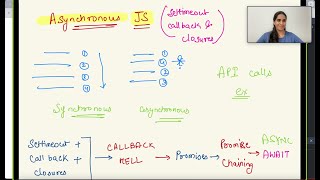 Asynchronous JS
(Settimeout
callback &
closures)
① ①
② ④
④ ③
③ ②
API calls
ex
Synchronous asynchronous
Settimeout + 
call back +
closures
CALLBACK
HELL
Promises
Promise
Chaining
ASYNC
AWAIT